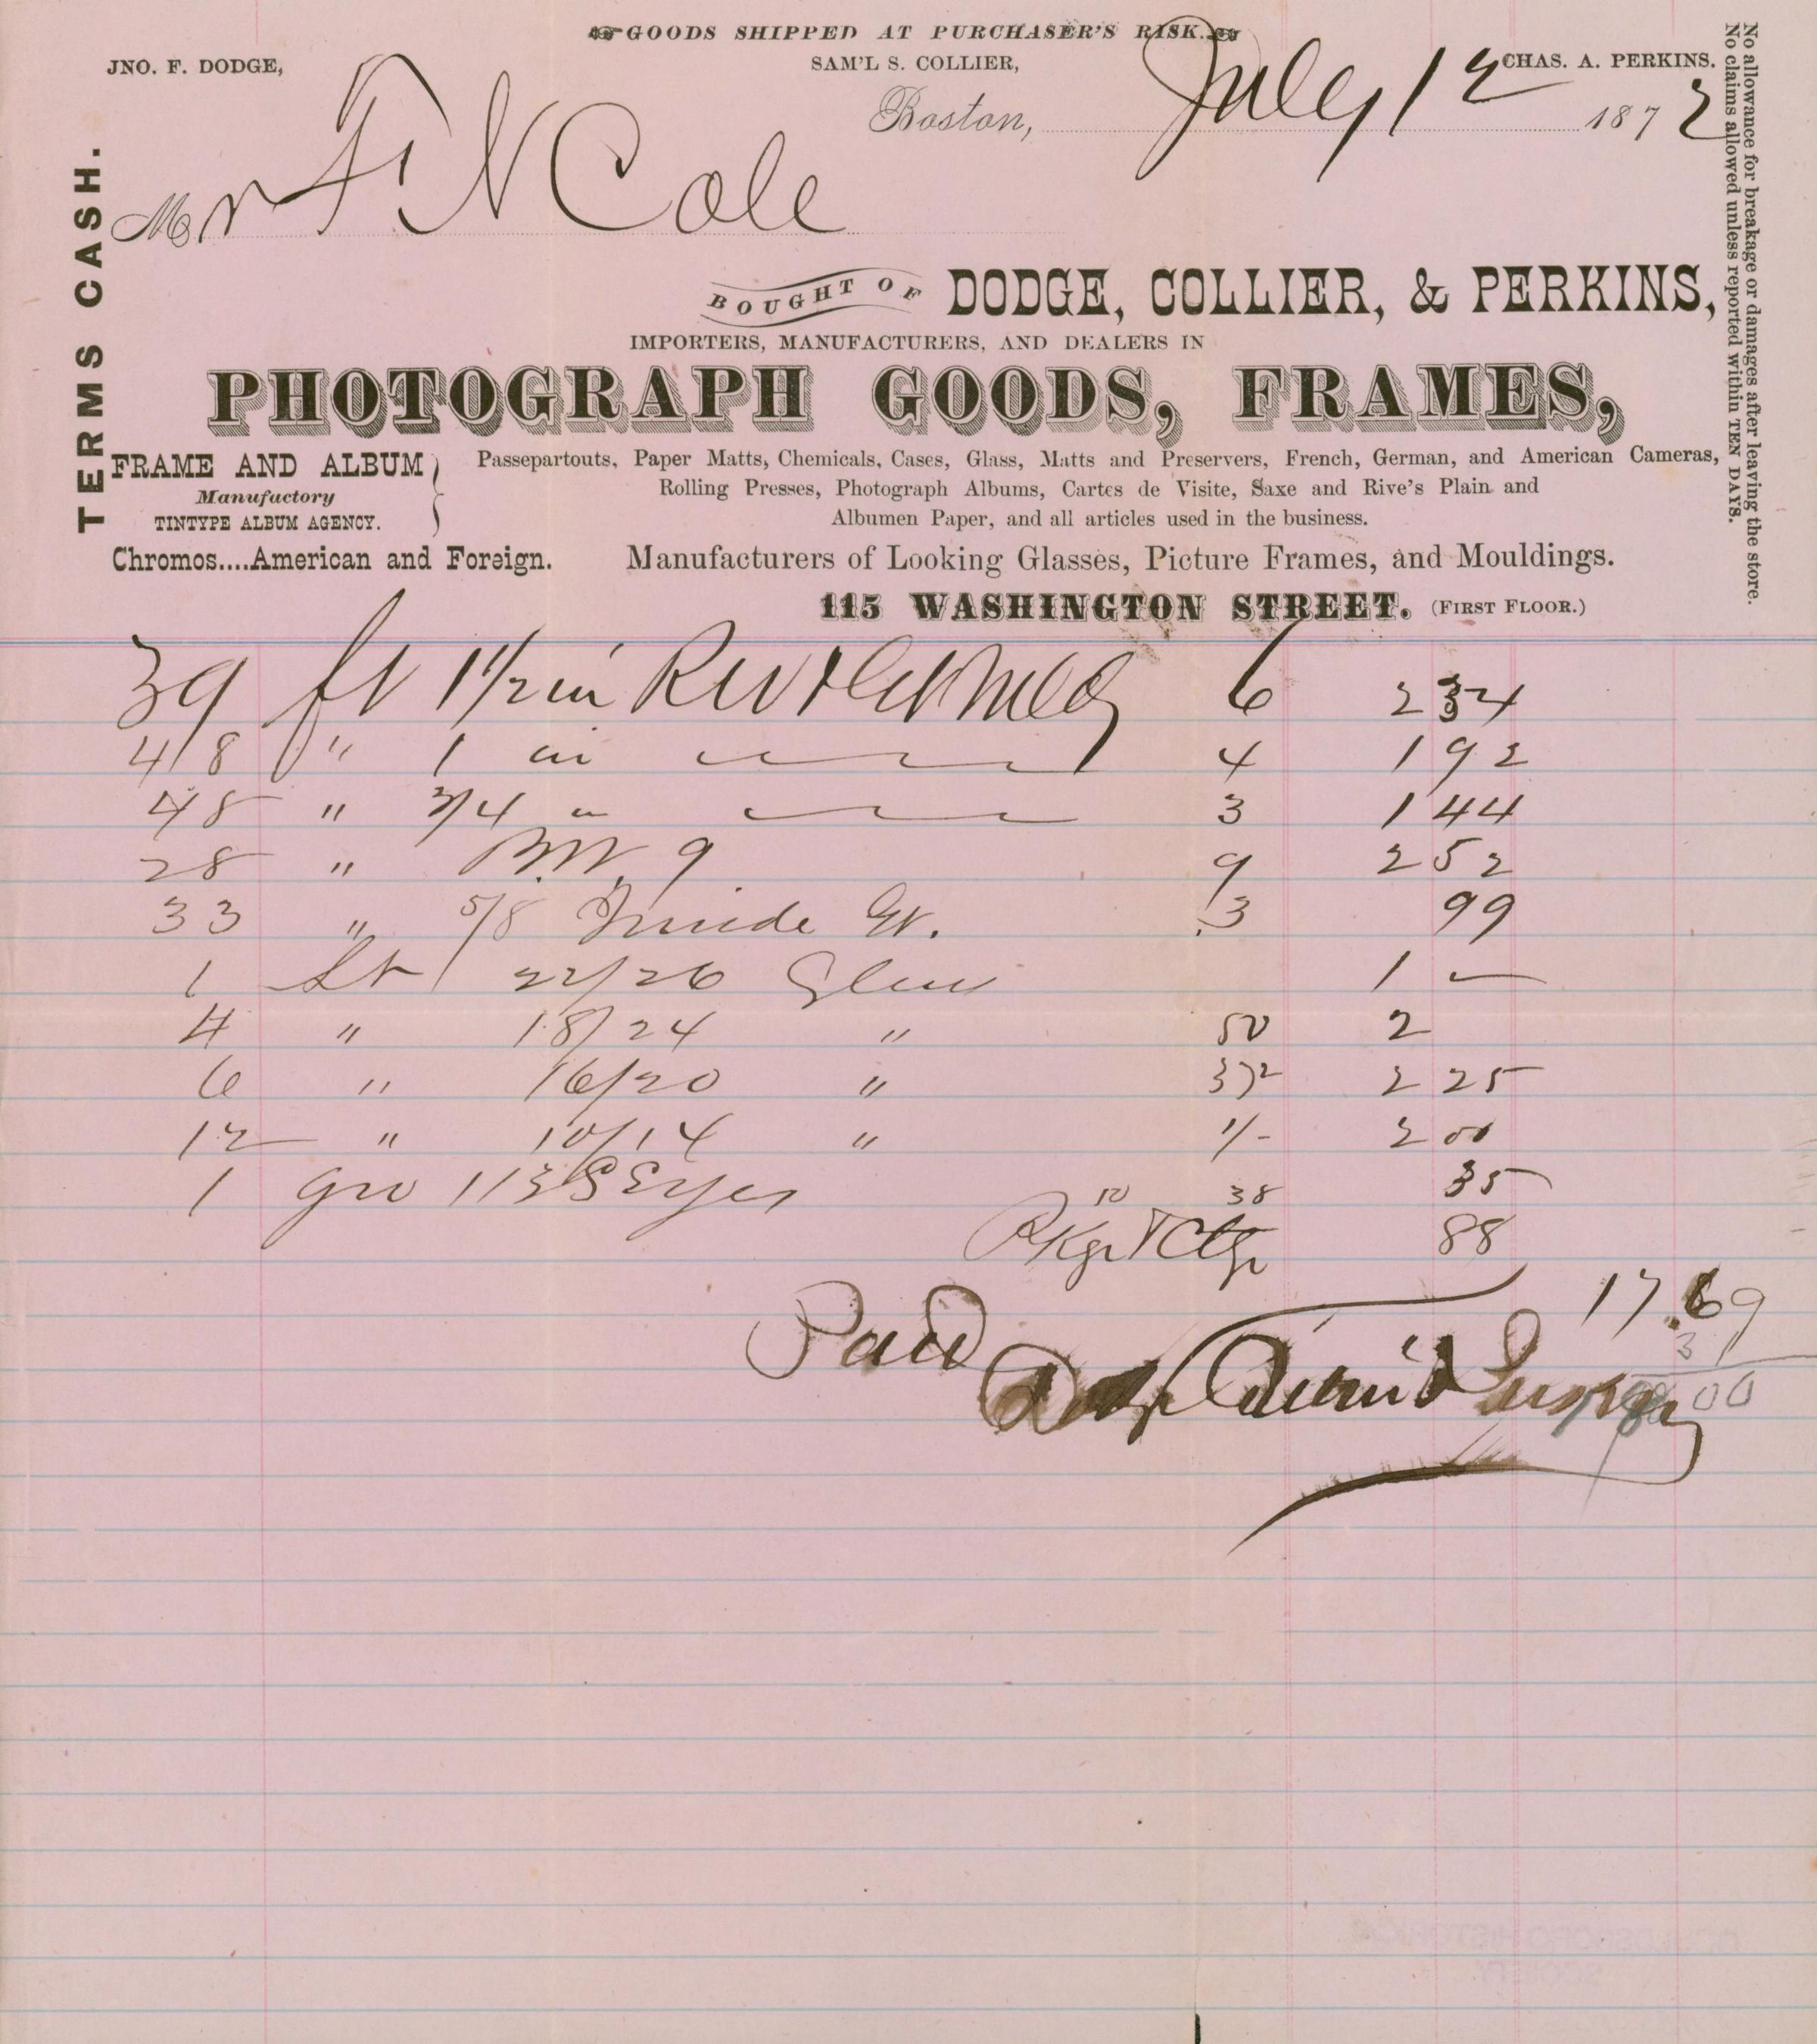 GOODS SHIPPED AT PURCHASER'S RISK.
JNO. F. DODGE, SAM'L S. COLLIER, CHAS. A. PERKINS.
Boston, July 12 1872
Mr F N Cole
TERMS CASH.
No allowance for breakage or damages after leaving the store.
No claims allowed unless reported within TEN DAYS.
BOUGHT OF DODGE, COLLIER, & PERKINS,
IMPORTERS, MANUFACTURERS, AND DEALERS IN
PHOTOGRAPH GOODS, FRAMES,
FRAME AND ALBUM
Manufactory
TINTYPE ALBUM AGENCY.
Passepartouts, Paper Matts, Chemicals, Cases, Glass, Matts and Preservers, French, German, and American Cameras,
Rolling Presses, Photograph Albums, Cartes de Visite, Saxe and Rive's Plain and
Albumen Paper, and all articles used in the business.
Chromos....American and Foreign. Manufacturers of Looking Glasses, Picture Frames, and Mouldings.
115 WASHINGTON STREET. (FIRST FLOOR.)
39 ft 1 1/2 in 6 2 34
48 " 1 in 4 1 92
48 " 3/4 " 3 1 44
28 " B.W. 9 9 2 52
33 " 5/8 Inside Gt. 3 99
1 Lt 22/26 Glass 1 —
4 " 18/24 " 50 2
6 " 16/20 " 37 2 2 25
12 " 10/14 " 1/- 2 00
1 gro 113 S Eyes 35
10 38
Pkg & Ctg 88
17.69
31
Paid
Dodge Collier & Perkins
18 00